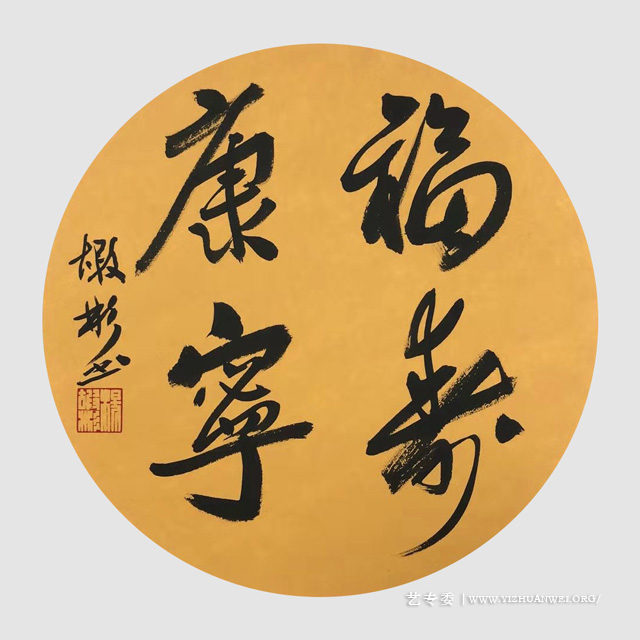 福寿
康寧
彬书
艺专委 | WWW.YIZHUANWEI.ORG/